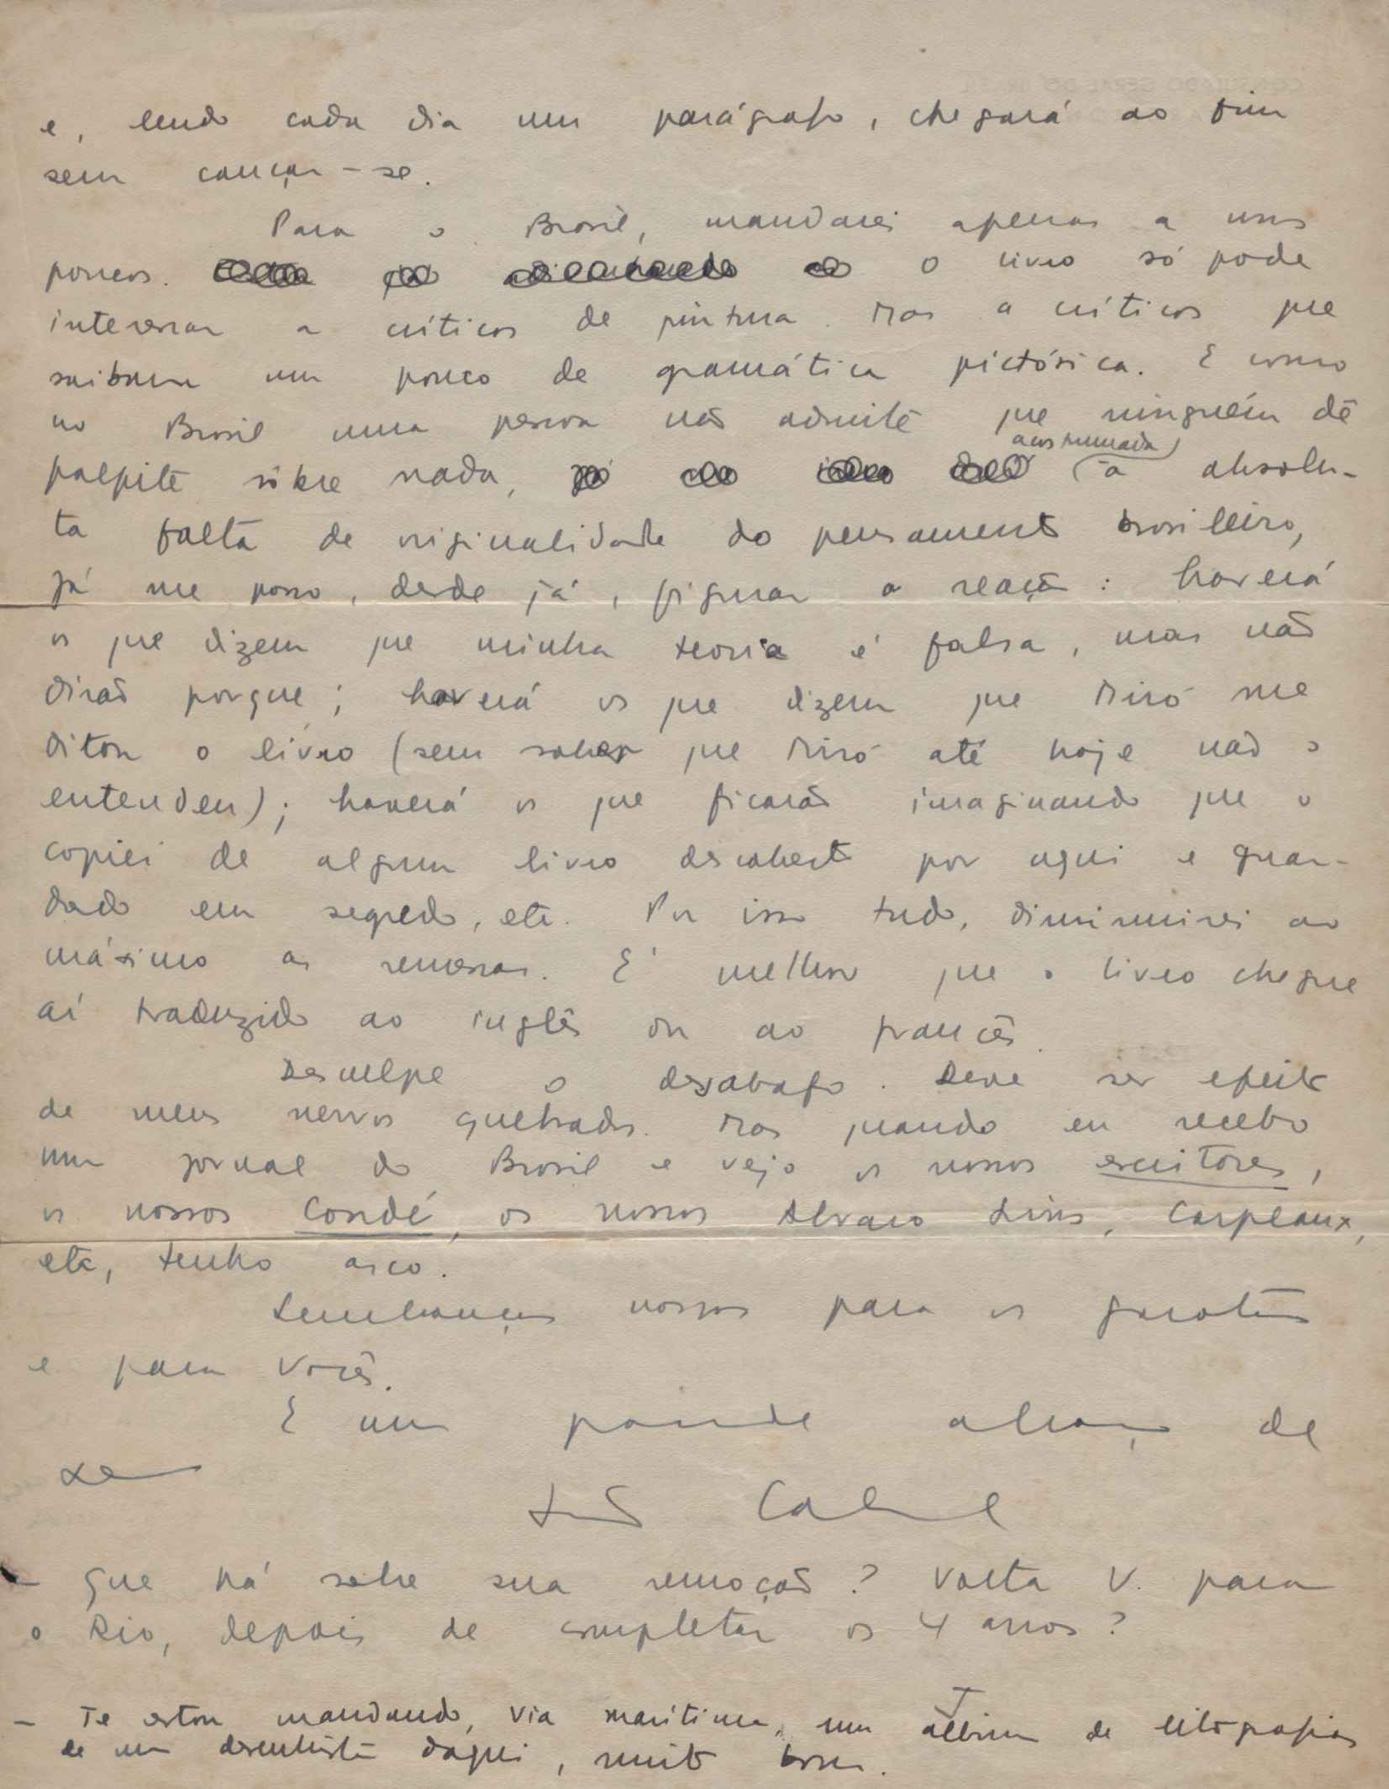 e, lendo cada dia um parágrafo, chegará ao fim
sem cançar-se.
Para o Brasil, mandarei apenas a uns
poucos. O livro só pode
interessar a críticos de pintura. Mas a críticos que
saibam um pouco de gramática pictórica. E como
no Brasil uma pessoa não admite que ninguém dê
acostumada
palpite sôbre nada, à absolu-
ta falta de originalidade do pensamento brasileiro,
já me posso, desde já, figurar a reação: haverá
os que dizem que minha teoria é falsa, mas não
dirão porque; haverá os que dizem que Miró me
ditou o livro (sem saber que Miró até hoje não o
entendeu); haverá os que ficarão imaginando que o
copiei de algum livro descoberto por aqui e guar-
dado em segredo, etc. Por isso tudo, diminuirei ao
máximo as remessas. É melhor que o livro chegue
aí traduzido ao inglês ou ao francês.
Desculpe o desabafo. Deve ser efeito
de meus nervos quebrados. Mas quando eu recebo
um jornal do Brasil e vejo os nossos escritores,
os nossos Condé, os nossos Alvaro Lins, Carpeaux,
etc, tenho asco.
Lembranças nossas para os garotos
e para Vocês.
E um grande abraço de
seu
João Cabral
- Que há sobre sua remoção? Volta V. para
o Rio, depois de completar os 4 anos?
- Te estou mandando, via marítima, um álbum de litografias
de um desenhista daqui, muito bom.